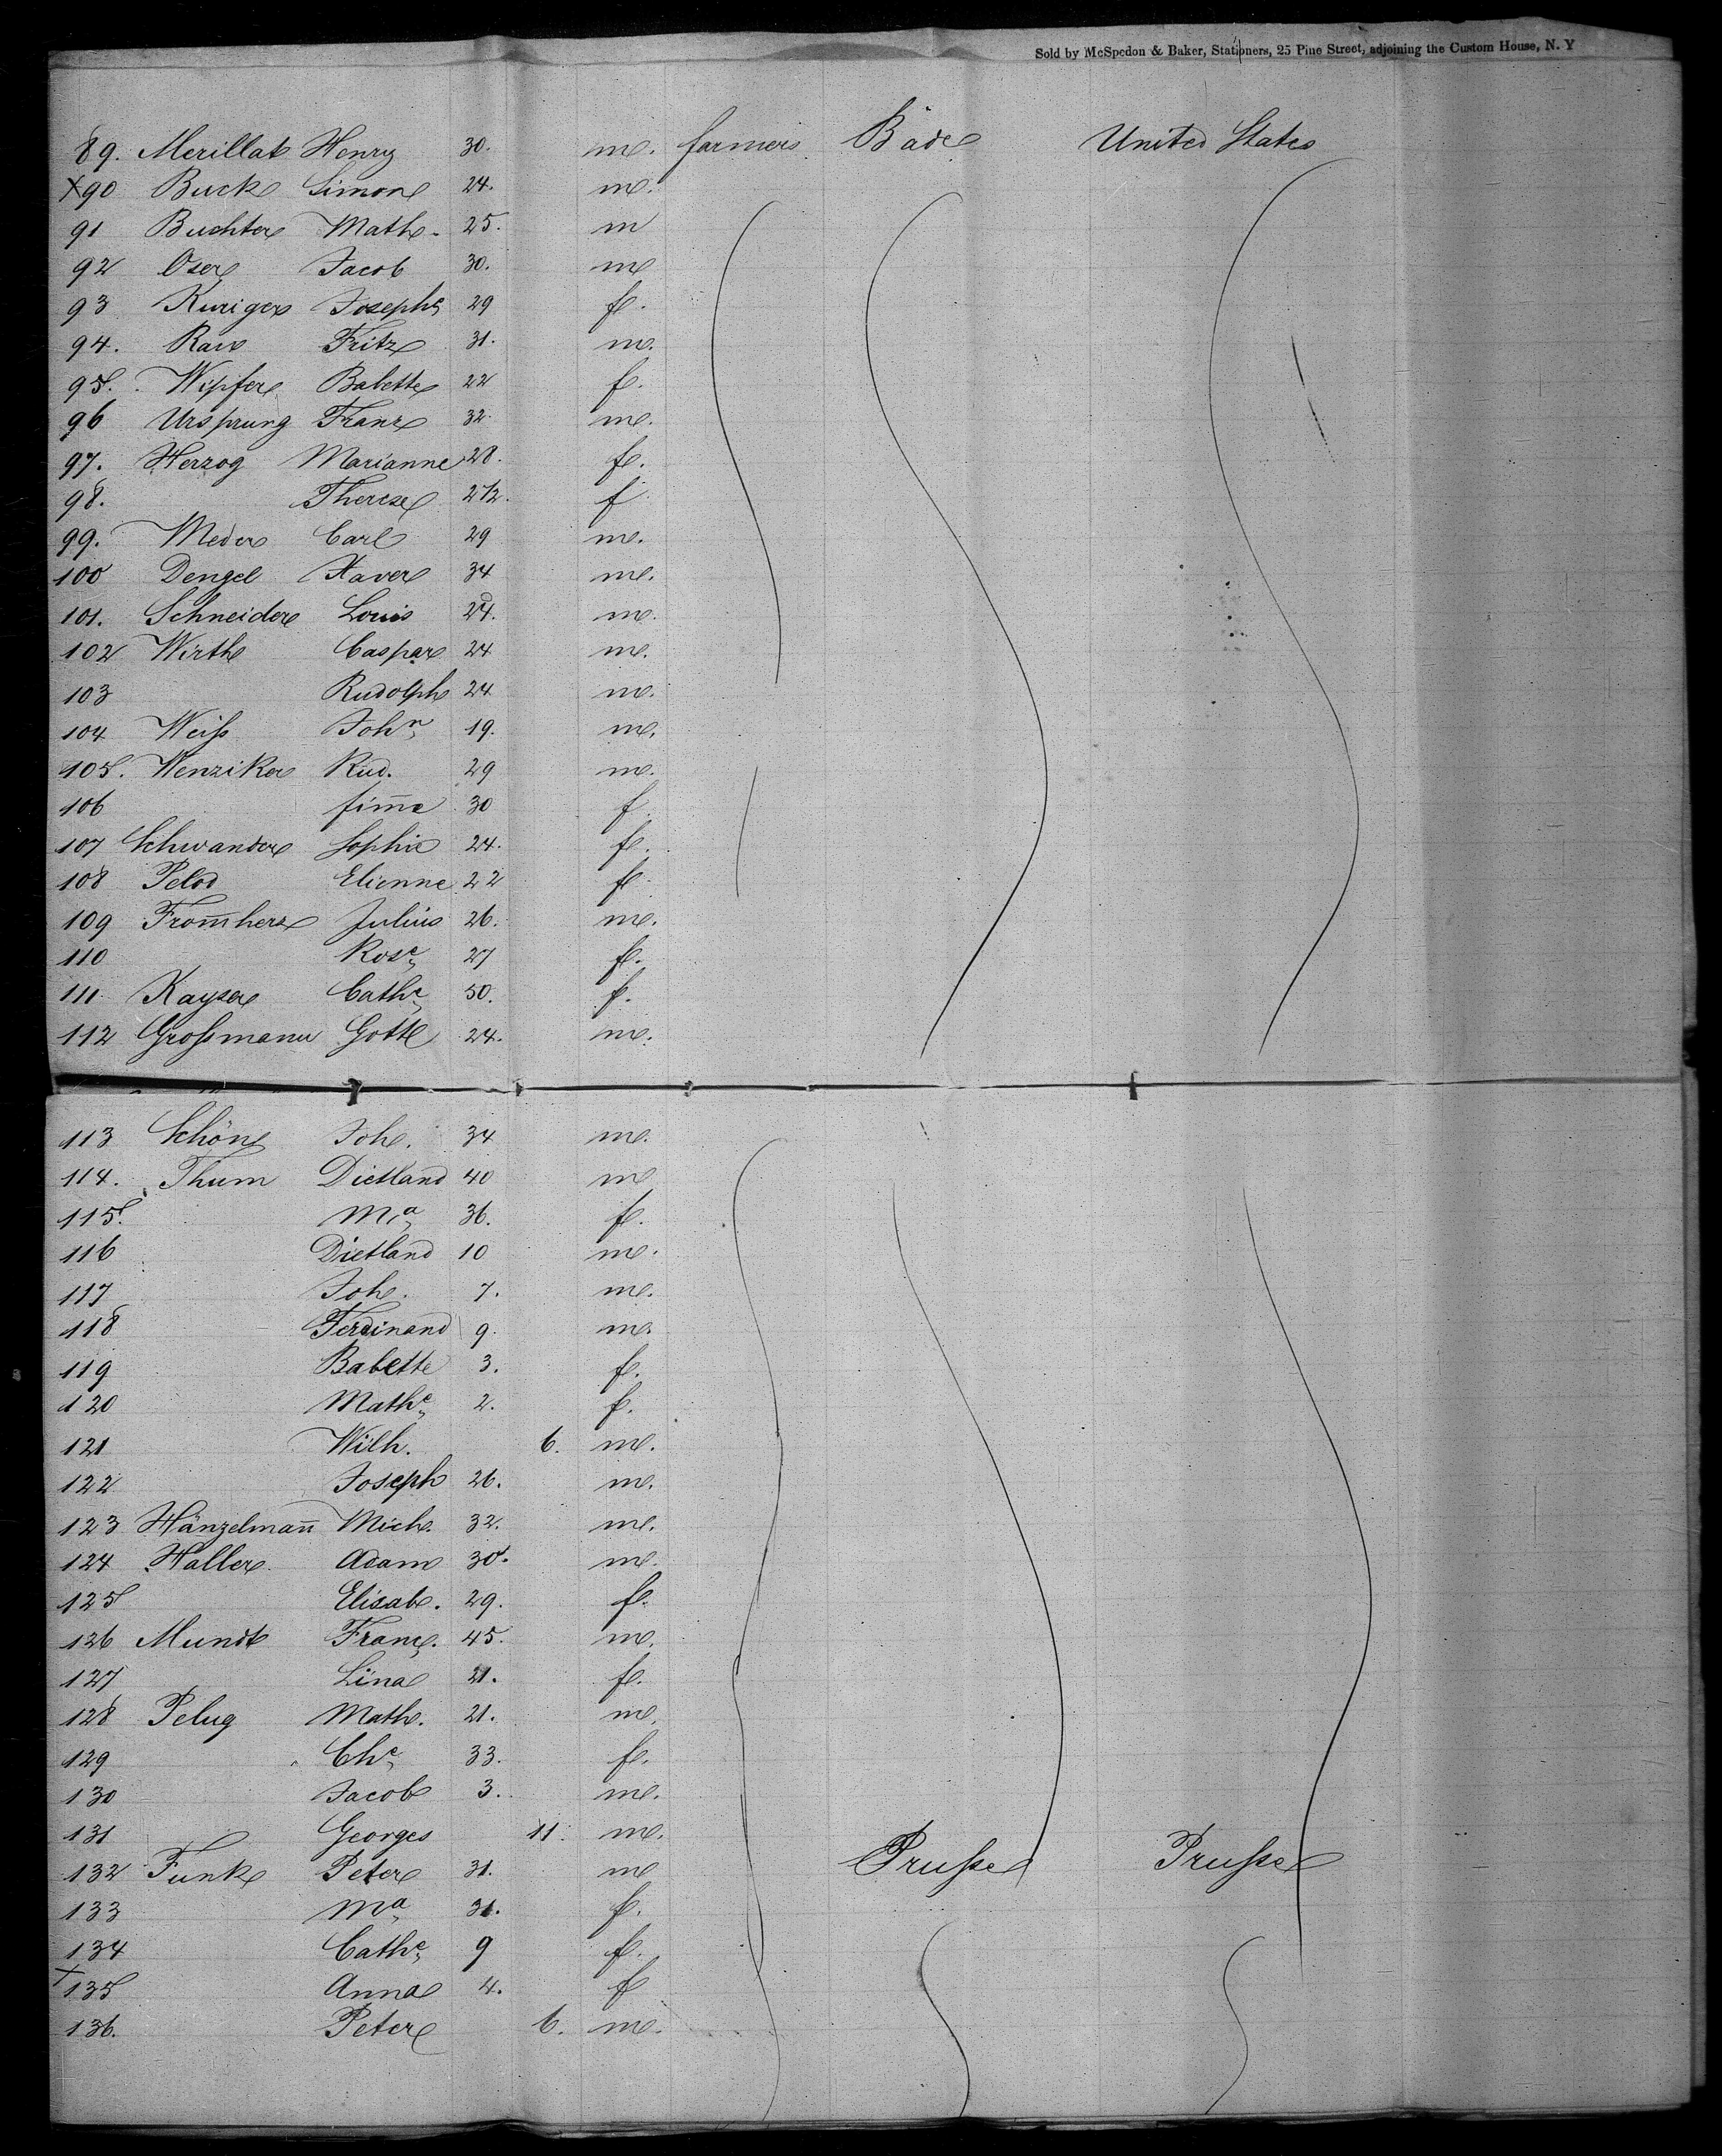 Sold by McSpedon & Baker, Stationers, 25 Pine Street, adjoining the Custom House, N. Y
89. Merillat Henry 30. m. farmers Bade United States
X90 Buck Simon 24. m.
91 Buchter Math. 25. m
92 Oser Jacob 30. m
93 Kuriger Josephe 29 f.
94. Rau Fritz 31. m.
95. Wipfer Babette 22 f.
96 Ursprung Franz 32. m.
97. Herzog Marianne 28. f.
98. Therese 2 1/2. f
99. Meder Carl 29 m.
100 Dengel Xaver 34 m.
101. Schneider Louis 24. m.
102 Wirth Caspar 24 m.
103 Rudolph 24 m.
104 Weiß John 19. m.
105. Wenziker Rud. 29 m.
106 30 f
107 Schwander Sophie 24. f.
108 Pelod Etienne 22 f
109 From̄herz Julius 26. m.
110 Rose 27 f.
111 Kayser Cathe 50. f.
112 Großmann Gottl 24. m.
113 Schön Joh. 34 m.
114. Thum Dietland 40 m
115. Ma 36. f.
116 Dietland 10 m.
117 Joh. 7. m.
118 Ferdinand 9. m.
119 Babette 3. f.
120 Mathe 2. f.
121 Wilh. 6. m.
122 Joseph 26. m.
123 Hänzelman̄ Mich. 32. m.
124 Haller Adam 30. m.
125 Elisab. 29. f.
126 Mundt Franç. 45. m.
127 Lina 21. f.
128 Pelug Math. 21. m.
129 Che 33. f.
130 Jacob 3. m.
131 Georges 11. m.
132 Funk Peter 31. m Prusse Prusse
133 Ma 31. f.
134 Cathe 9 f.
X135 Anna 4. f
136. Peter 6. m.